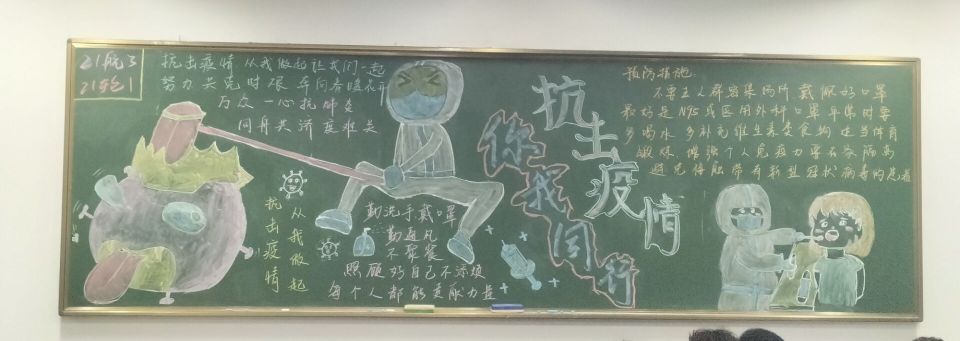 21航3
21轮1
抗击疫情 从我做起让我们一起
努力共克时艰 车间春暖花开
万众一心抗肺炎
同舟共济度难关
从我做起
抗击疫情
勤洗手戴口罩
勤通风
不聚餐
照顾好自己不添烦
每个人都能贡献力量
你我同行
抗士疫情
预防措施
不要去人群密集场所 戴好口罩
最好是N95或医用外科口罩平常时要
多喝水 多补充维生素类食物 适当体育
锻炼 增强个人免疫力要在家隔离
避免接触带有新型冠状病毒的患者